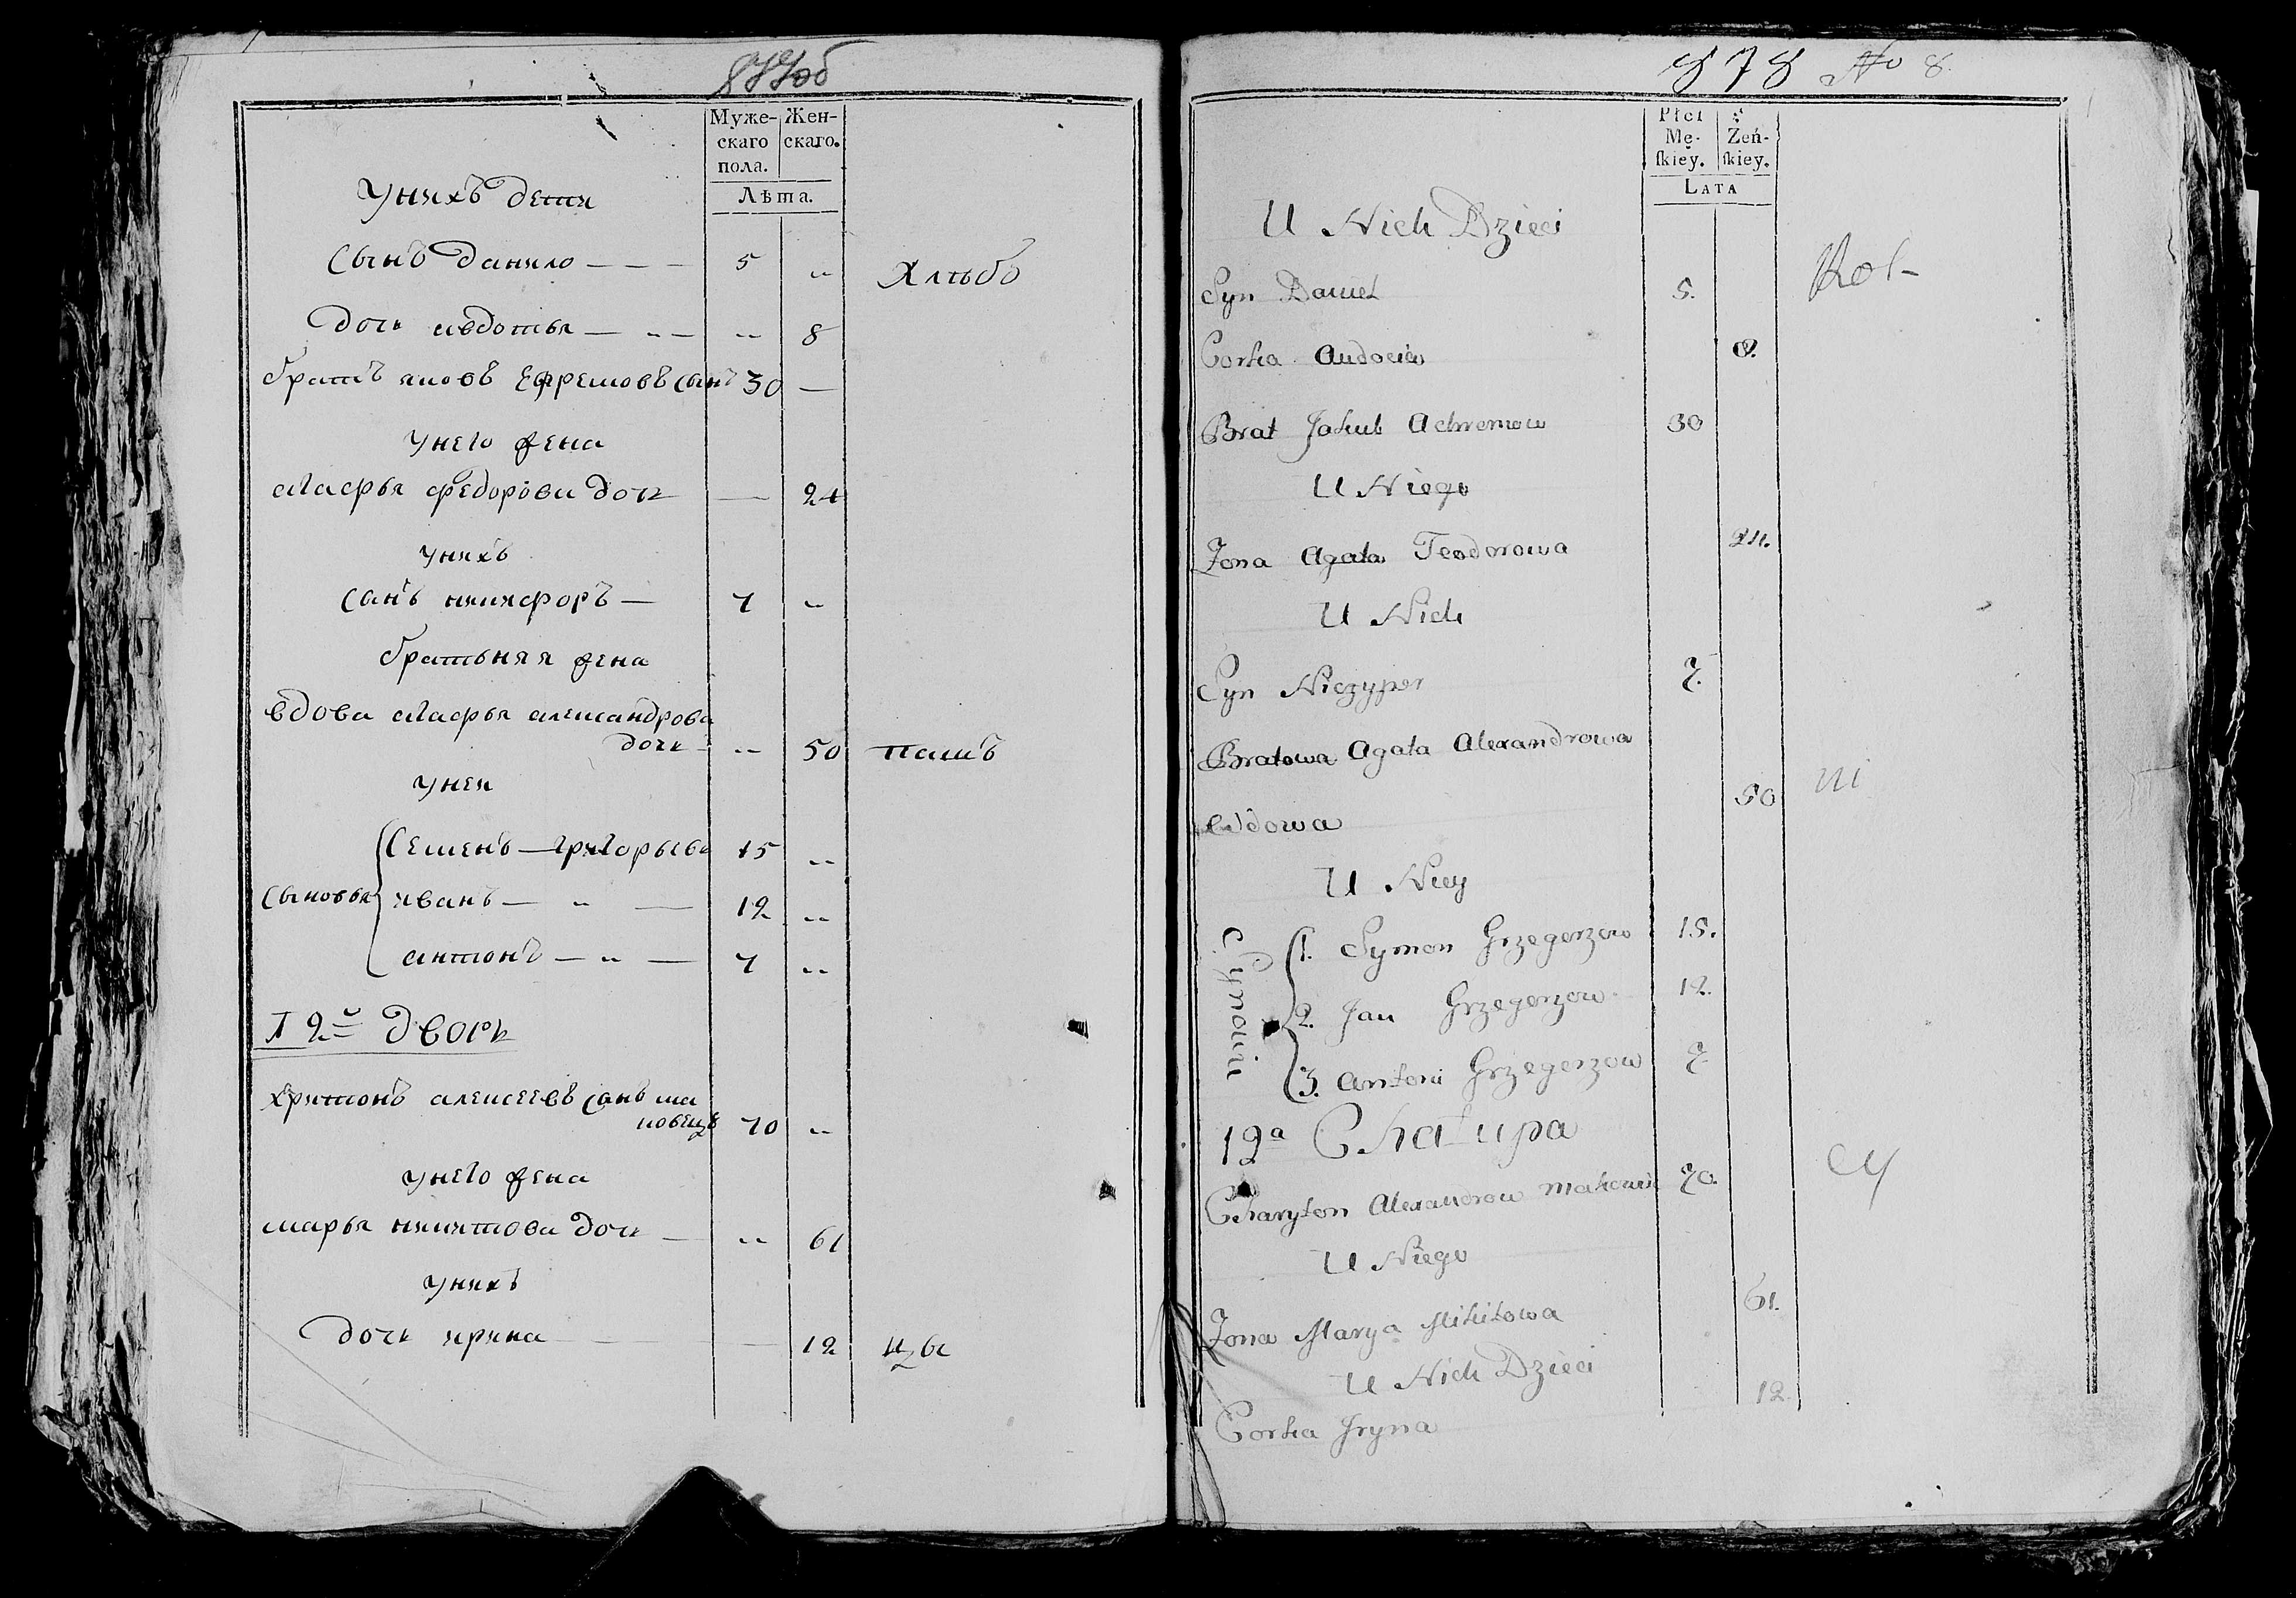 877об
Муже-
скаго
пола.
Жен-
скаго.
Лѣта.
Унихъ дети
Сынъ данило — — — 5 „ Хлѣбо
дочь авдотья — „ — „ 8
братъ яковъ Ефремовъ Сынъ 30 —
Унего жена
Агафья федорова дочь — 24
Унихъ
Сынъ никифоръ — 7 „
братьняя жена
вдова Агафья александрова
дочь — „ 50 пашъ
Унеи
Сыновья
Семенъ — Григорьевъ 15 „
иванъ — „ — 12 „
антонъ — „ — 7 „
12й дворъ
харитонъ алексеевъ сынъ ма
ковецъ 70 „
Унего жена
марья никитова дочь — „ 61
Унихъ
дочь ирина — — 12 цы
878 No 8.
Płci
Mę-
ſkiey.
Żeń-
ſkiey.
LATA
U Nich Dzieci
Syn Daniel 5. Rol-
Corka Audocia 8.
Brat Jakub Achremow 30
U Niego
Żona Agata Teodorowa 24.
U Nich
Syn Niczyper 7.
Bratowa Agata Alexandrowa
Wdowa 50 ni
U Niey
Synowie
1. Symon Grzegorzow 15.
2. Jan Grzegorzow 12.
3. Antoni Grzegorzow 7
12a Chałupa
Charyton Alexandrow 70. cy
U Niego
Żona Marya Mikitowa 61.
U Nich Dzieci
Corka Jryna 12.